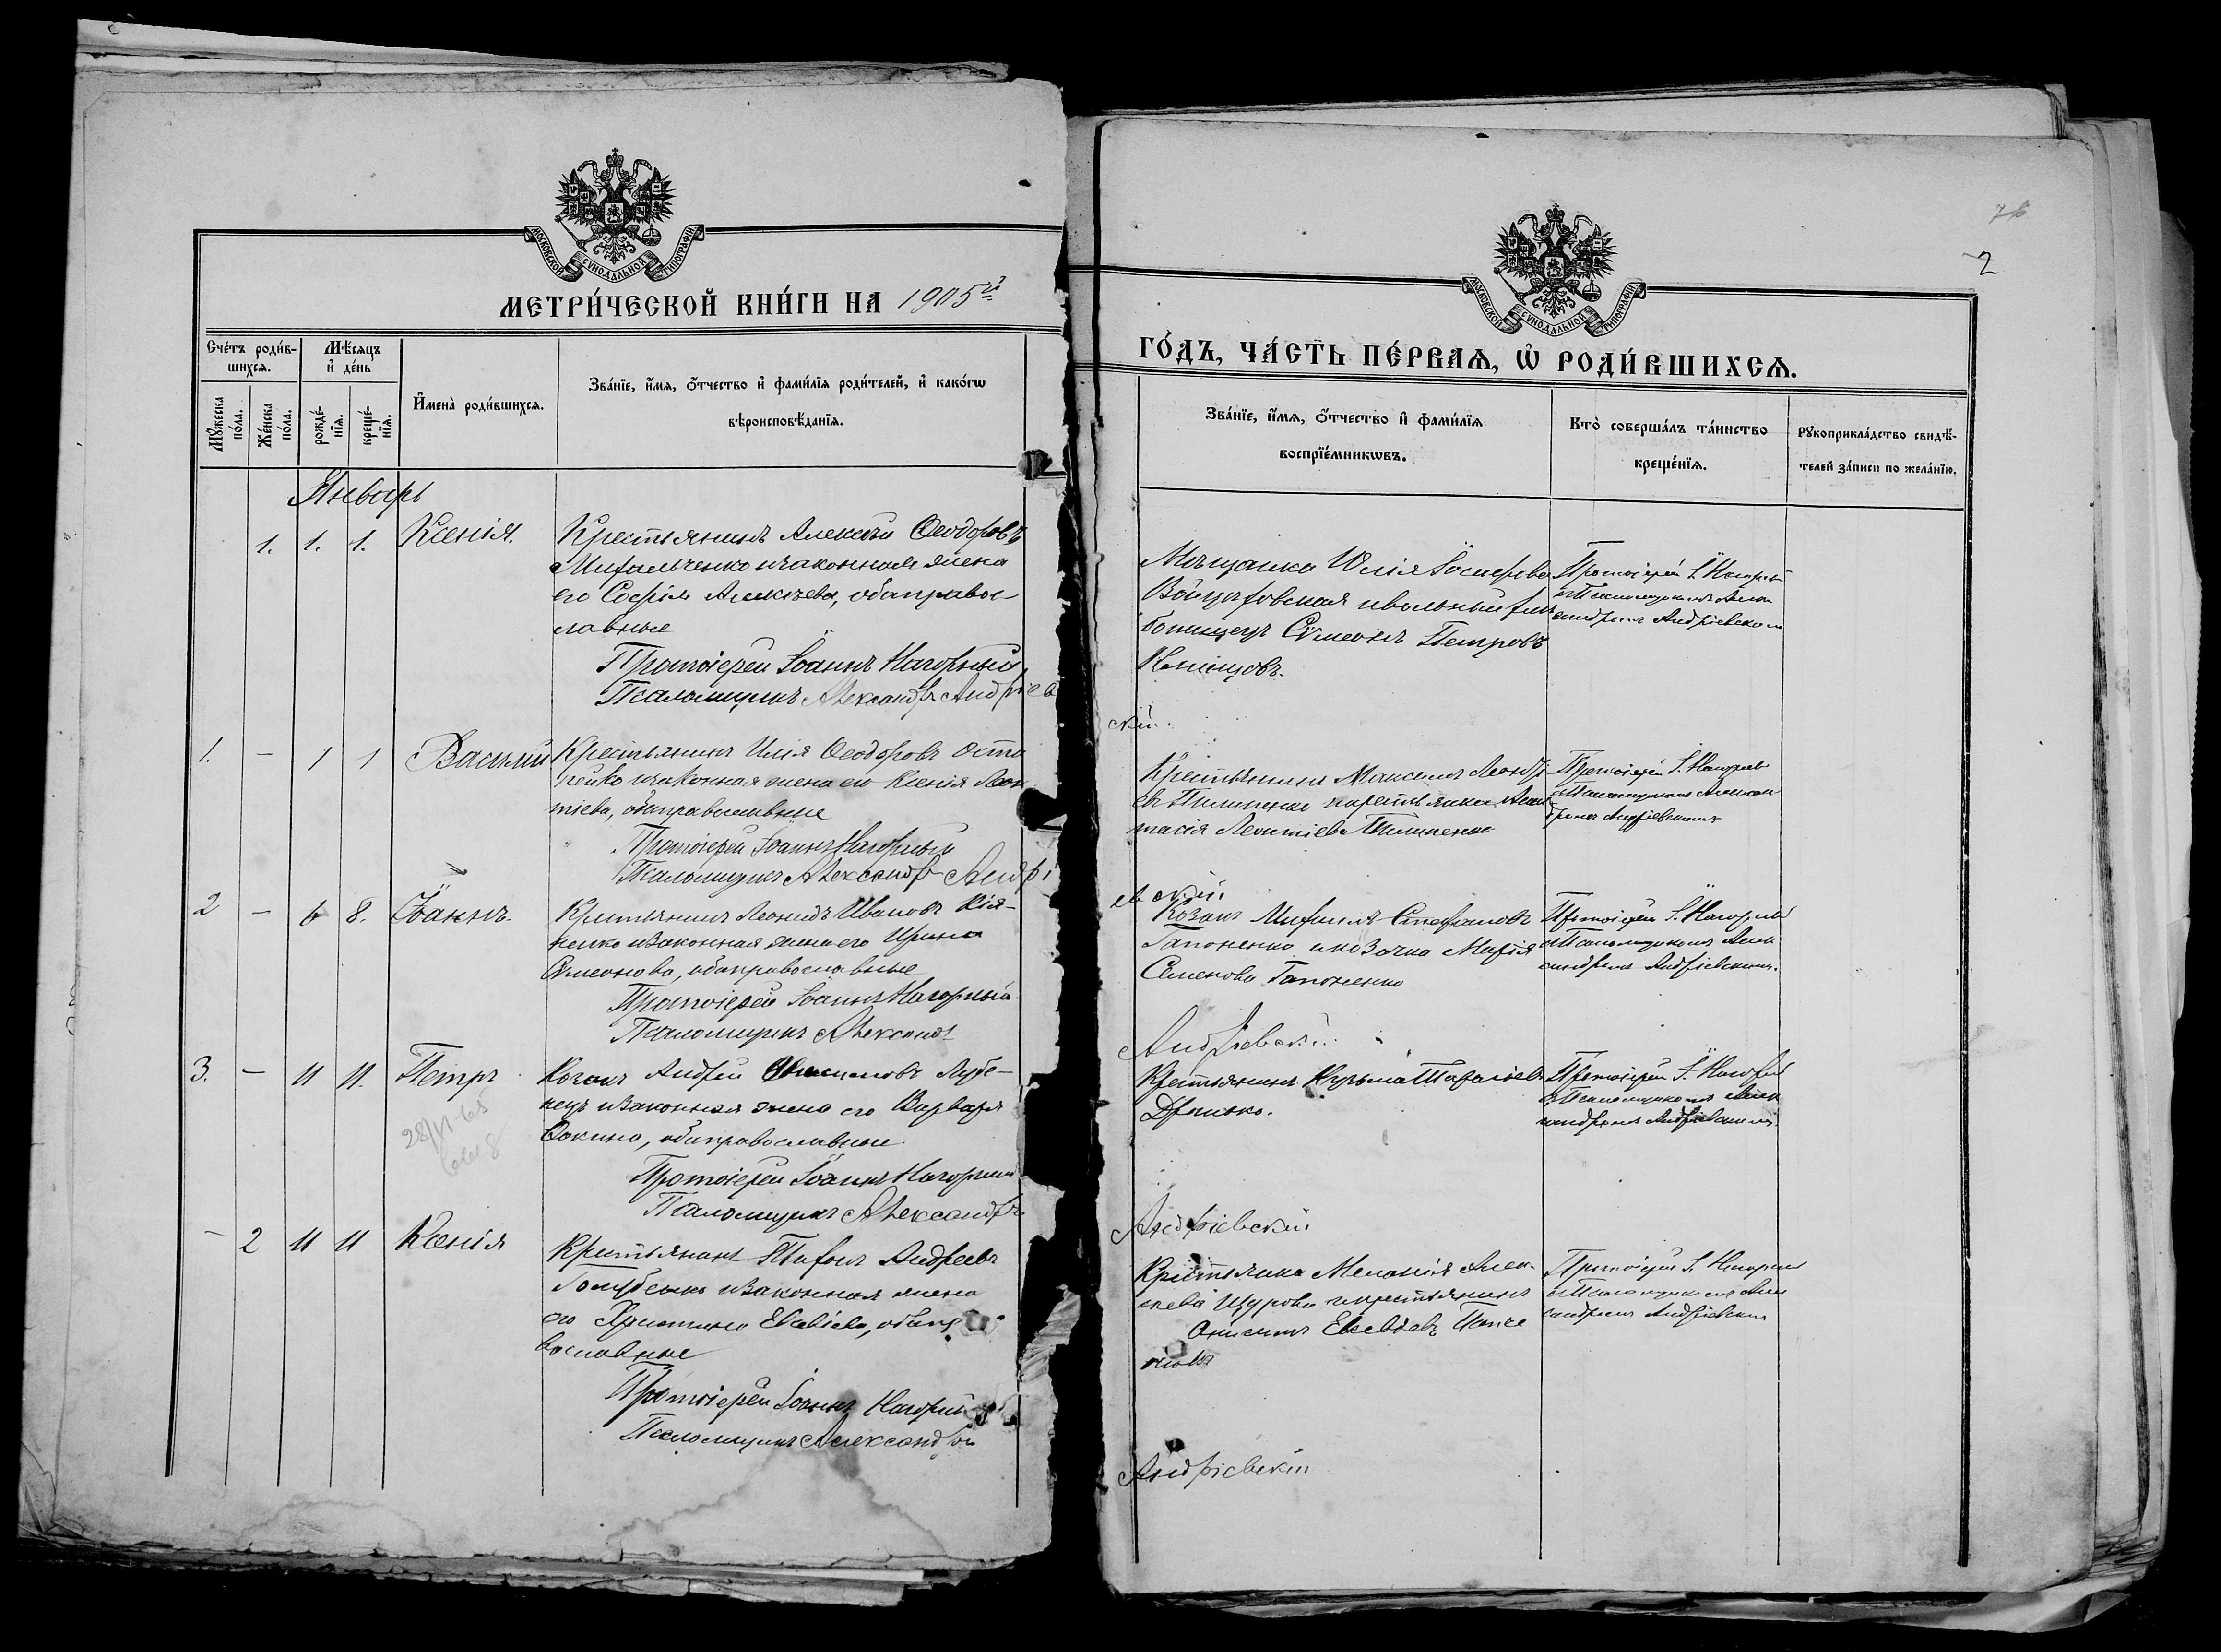 МОСКОВСКОЙ СУНОДАЛЬНОЙ ТИПОГРАФІИ
МЕТРИ́ЧЕСКОЙ КНИ́ГИ НА 1905й
Сче́тъ роди́в-
шихсѧ.
Мѣ́сѧцъ
и҆ де́нь
Мꙋ́жеска
по́ла.
Же́нска
по́ла.
рожде́-
нїѧ.
креще́-
нїѧ.
И҆мена̀ роди́вшихсѧ.
Зва́нїе, и҆́мѧ, ѻ҆́тчество и҆ фами́лїѧ роди́телей, и҆ како́гѡ
вѣроисповѣ́данїѧ.
Январь
1. 1. 1. Ксенія.
Крестьянинъ Алексѣй Ѳеодоровъ
Михальченко и законная жена
его Софія Алексѣева, оба правос-
лавные
Протоіерей Іоаннъ Нагорный
Псаломщикъ Александръ Андріев
1. — 1 1 Василій
Крестьянинъ Илія Ѳеодоровъ Оста
пенко и законная жена его Ксенія Леон
тіева, оба православные
Протоіерей Іоаннъ Нагорный
Псаломщикъ Александр Андрі
2 — 6 8. Іоаннъ.
Крестьянинъ Леонидъ Ивановъ Кія-
ненко и законная жена его Ирина
Сѵмеонова, оба православные
Протоіерей Іоаннъ Нагорный
Псаломщикъ Александ
3. — 11 11. Петръ
Козакъ Андрей Лубе-
нецъ и законная жена его Варвара
Фокина, оба православные
Протоіерей Іоаннъ Нагорный
Псаломщикъ Александръ
— 2 11 11 Ксенія
Крестьянинъ Тихонъ Андреевъ
Голубенко и законная жена
его Христина Евсевіева, оба пра
вославные
Протоіерей Іоаннъ Нагорный
Псаломщикъ Александръ
2
МОСКОВСКОЙ СУНОДАЛЬНОЙ ТИПОГРАФІИ
ГО́ДЪ, ЧА́СТЬ ПЕ́РВАѦ, Ѡ҆ РОДИ́ВШИХСѦ.
Зва́нїе, и҆́мѧ, ѻ҆́тчество и҆ фами́лїѧ
воспрїе́мникѡвъ.
Кто̀ соверша́лъ та́инство
креще́нїѧ.
Рꙋкоприкла́дство свидѣ́-
телей за́писи по жела́нїю.
Мѣщанка Юлія Іосифова
Войцеховская и вольный хлѣ
бопашецъ Сѵмеонъ Петровъ
Протоіерей І. Нагорный
съ Псаломщикомъ Алек
сандромъ Андріевскимъ
скій.
Крестьянинъ Максимъ Леонтi
евъ Пилипенко и крестьянка Анас
тасія Леонтіева Пилипенко
Протоіерей І. Нагорный
съ Псаломщикомъ Алексан
дромъ Андріевскимъ
евскій
Козакъ Михаилъ Стефановъ
Гапоненко и козачка Марія
Семенова Гапоненко
Протоіерей І. Нагорный
съ Псаломщикомъ Алек
сандромъ Андріевскимъ.
Андріевскій
Крестьянинъ Кузьма
Протоіерей І. Нагорный
съ Псаломщикомъ Алек
сандромъ Андріевскимъ
Андріевскій
Крестьянка Меланія Алек-
сеева Щурова и крестьянинъ
Онисимъ Евсевіевъ
Протоіерей І. Нагорный
съ Псаломщикомъ Алек
сандромъ Андріевскимъ
Андріевскій